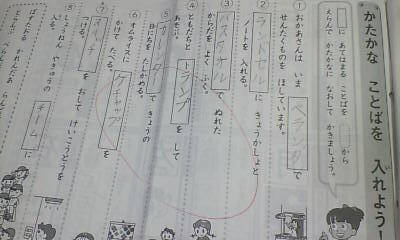 かたかな ことばを 入れよう!
□に あてはまる ことばを □から
えらんで かたかなに なおして かきましょう。
① おかあさんは いま ベランダ で
せんたくものを ほしています。
② ランドセル に きょうかしょと
ノートを 入れる。
③ バスタオル で ぬれた
からだを よく ふく。
④ ともだちと トランプ を して
あそぶ。
⑤ カレンダー で きょうの
日にちを たしかめる。
⑥ オムライスに ケチャップ を
かけて たべる。
⑦ スイッチ を おして けいこうとうを
つける。
⑧ しょうねん やきゅうの チーム に
入る。